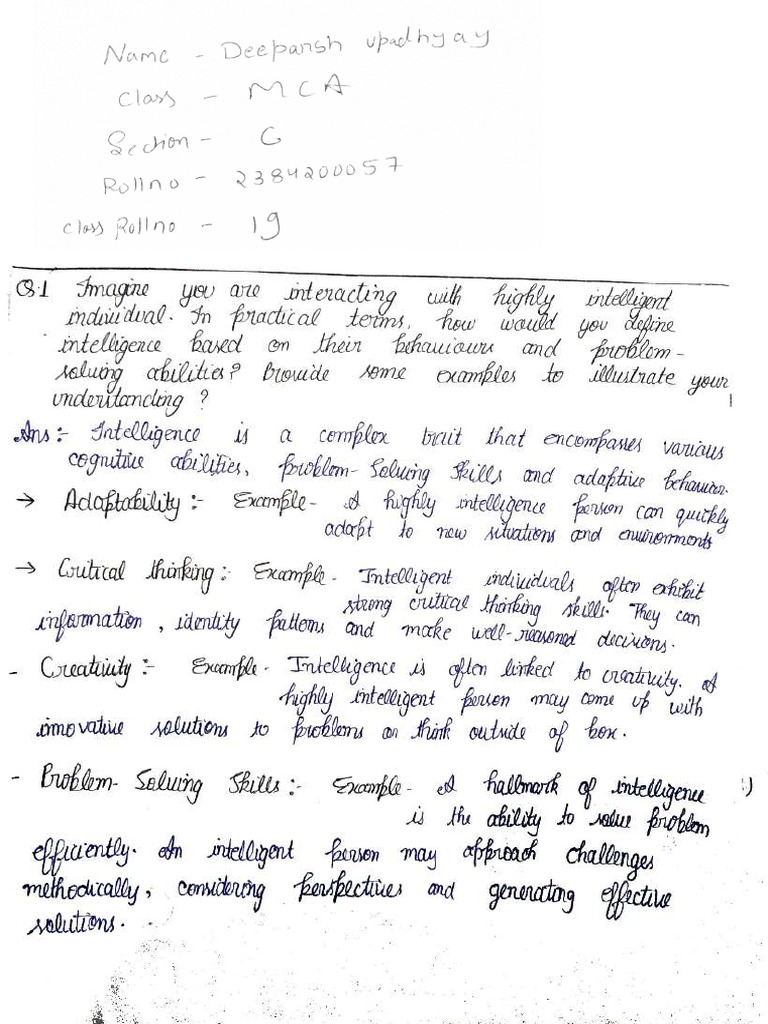 Name - Deepansh upadhyay
Class - MCA
Section - C
Rollno - 2384200057
Class Rollno - 19
Q.1 Imagine you are interacting with highly intelligent
individual. In practical terms, how would you define
intelligence based on their behaviours and problem-
solving abilities? Provide some examples to illustrate your
understanding ?
Ans :- Intelligence is a complex trait that encompasses various
cognitive abilities, problem-Solving Skills and adaptive behaviour.
→ Adaptability :- Example - A highly intelligence person can quickly
adapt to new situations and environments
→ Critical thinking :- Example - Intelligent individuals often exhibit
strong critical thinking skills. They can
information, identity patterns and make well-reasoned decisions.
- Creativity :- Example - Intelligence is often linked to creativity. A
highly intelligent person may come up with
innovative solutions to problems or think outside of box.
- Problem-Solving Skills :- Example - A hallmark of intelligence
is the ability to solve problem
efficiently. An intelligent person may approach challenges
methodically, considering perspectives and generating effective
solutions.